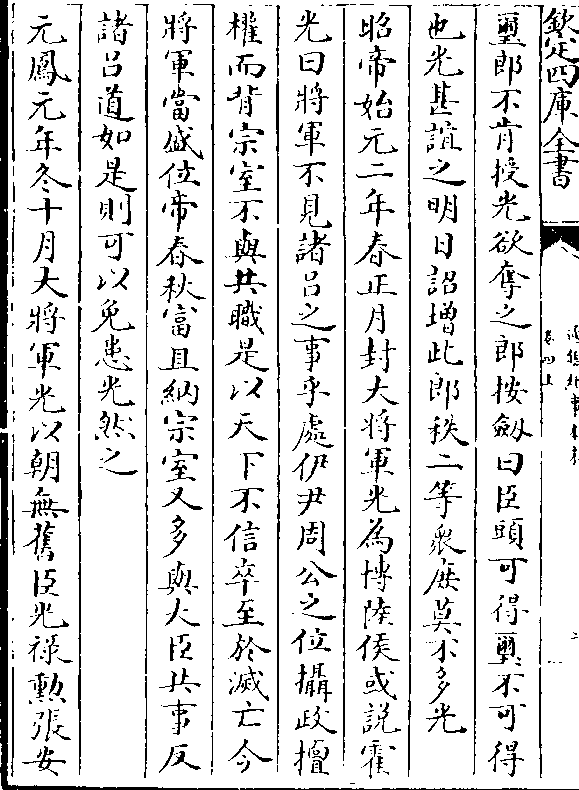 欽定四庫全書
卷四上
璽郎不肯授光欲奪之郎按劔曰臣頭可得璽不可得
也光甚誼之明日詔增此郎秩二等衆庶莫不多光
昭帝始元二年春正月封大將軍光為博陸侯或說霍
光曰將軍不見諸吕之事乎處伊尹周公之位攝政擅
權而背宗室不與共職是以天下不信卒至於滅亡今
將軍當盛位帝春秋富且納宗室又多與大臣共事反
諸吕道如是則可以免患光然之
元鳳元年冬十月大將軍光以朝無舊臣光禄勲張安